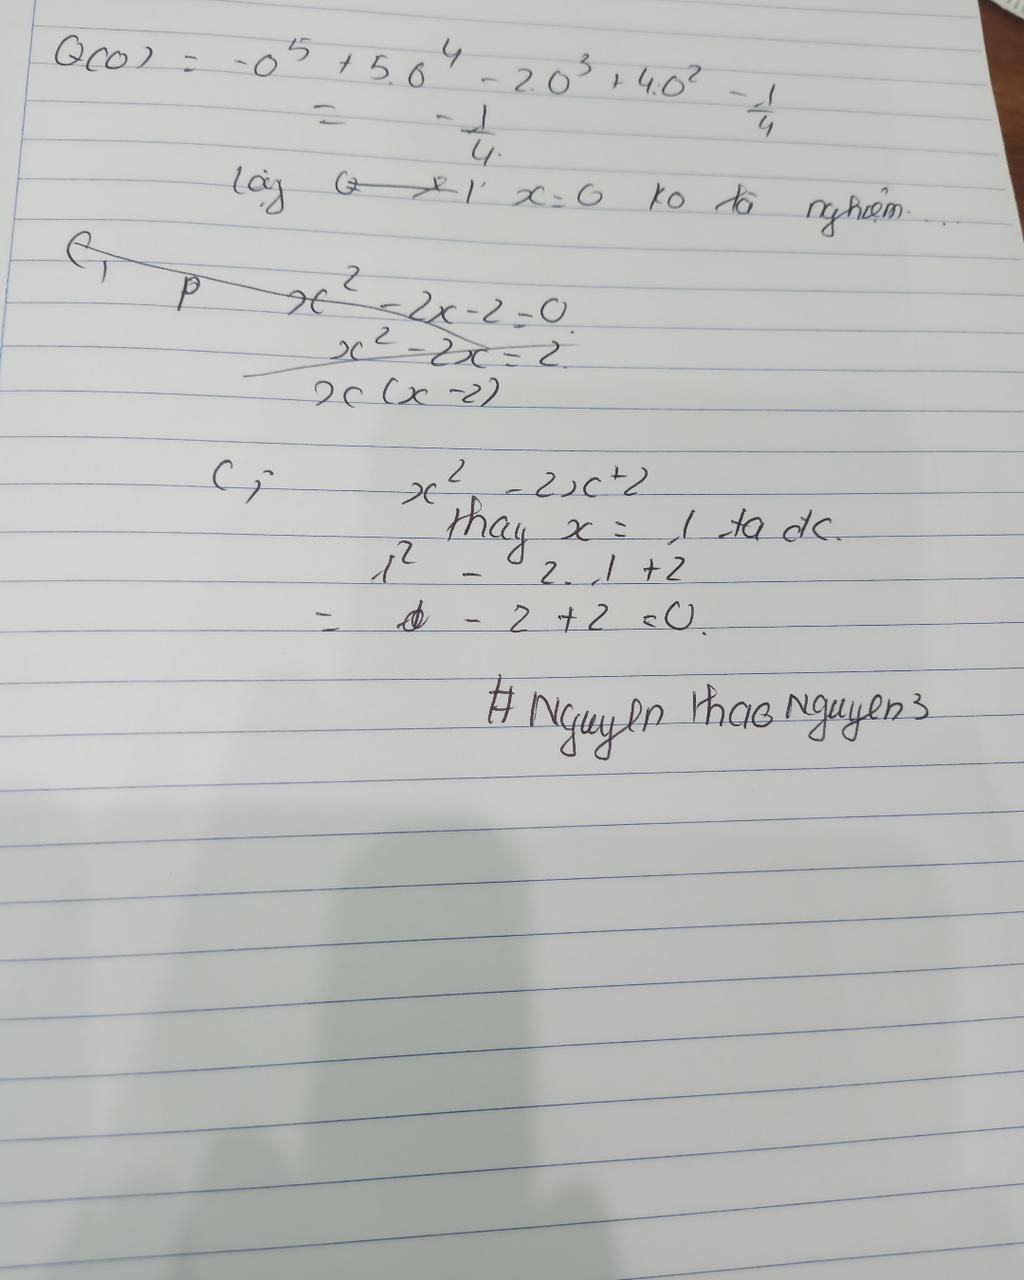 Q(0) = -0⁵ + 5.0⁴ - 2.0³ + 4.0² - 1/4
= - 1/4.
x=0 ko là nghiệm....
C,
P x² - 2x - 2 = 0.
x² - 2x = 2.
x (x - 2)
C, x² - 2x + 2
thay x = 1 ta dc.
1² - 2. 1 + 2
= - 2 + 2 = 0.
# Nguyen thao Nguyen3